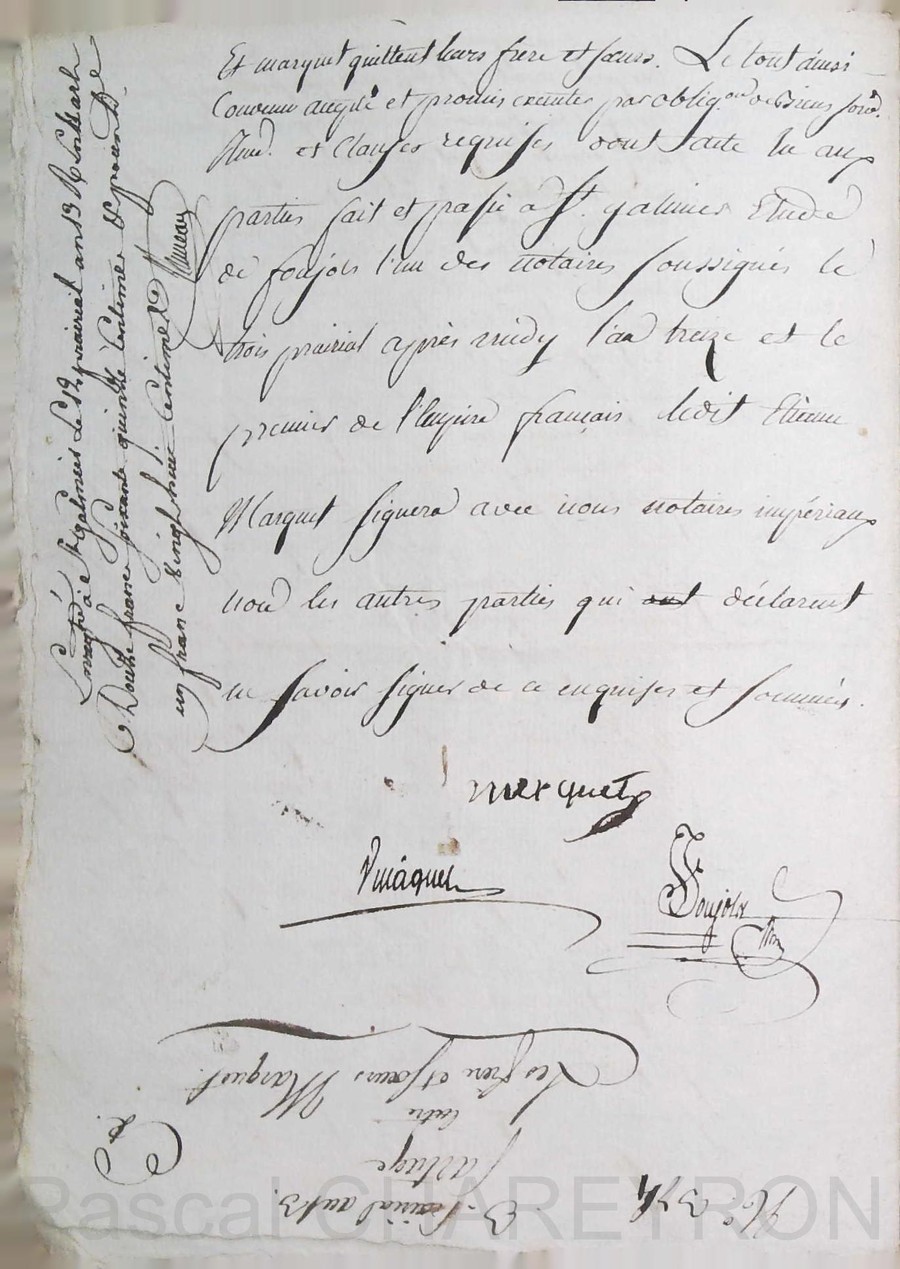 Et marquet quittent leurs frere et sœurs. Le tout ainsi
Convenu accepté et promis executer par obligon. de Biens
et Clauses requises dont acte lu aux
parties fait et passé a St. galmier Etude
de foujols l'un des notaires soussignés le
trois prairial après midy l'an treize et le
premier de l'Empire français ledit Etienne
Marquet signera avec nous notaires impériaux
non les autres parties qui ont déclarent
ne savoir signer de ce enquises et sommées.
marquet
Foujols
Enregistré a St galmier le 12 prairial an 13 R.
Douze francs quinze centimes
un franc vingt huit centimes
No. 374
3. Prairial an 13.
Partage
Entre
Les frere et sœurs Marquet.
Pascal CHAREYRON